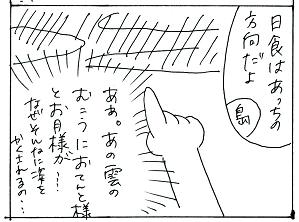 日食はあっちの
方向だよ
島
ああ。あの雲の
むこうにおてんと様
とお月様が…?
なぜそんなに姿を
かくされるの…?